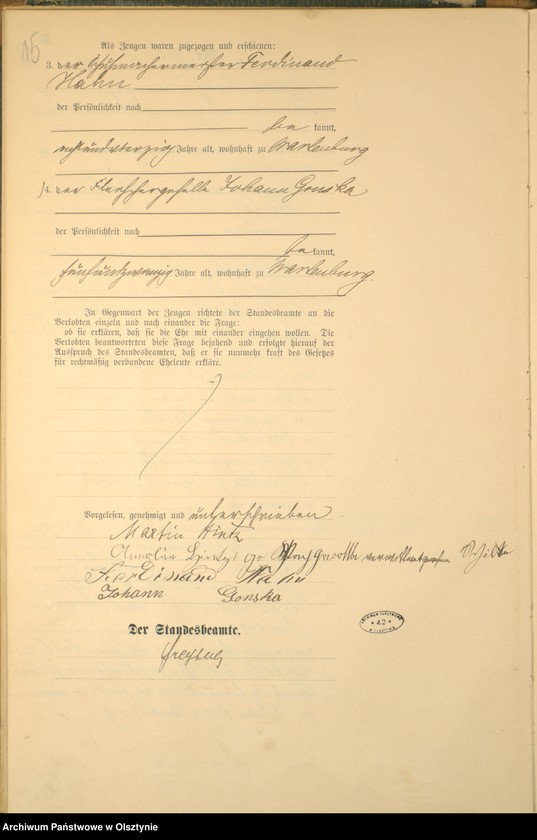 15
Als Zeugen waren zugezogen und erschienen:
3. der Schuhmachermeister Ferdinand
Hahn
der Persönlichkeit nach
be kannt,
achtundvierzig Jahre alt, wohnhaft zu Wartenburg
4. der Fleischergeselle Johann Gonska
der Persönlichkeit nach
be kannt,
fünfundzwanzig Jahre alt, wohnhaft zu Wartenburg.
In Gegenwart der Zeugen richtete der Standesbeamte an die
Verlobten einzeln und nach einander die Frage:
ob sie erklären, daß sie die Ehe mit einander eingehen wollen. Die
Verlobten beantworteten diese Frage bejahend und erfolgte hierauf der
Ausspruch des Standesbeamten, daß er sie nunmehr kraft des Gesetzes
für rechtmäßig verbundene Eheleute erkläre.
Vorgelesen, genehmigt und unterschrieben
Martin Hintz
Hintz
Ferdinand Hahn
Johann Gonska
Der Standesbeamte.
ARCHIWUM PAŃSTWOWE
* 42 *
w OLSZTYNIE
Archiwum Państwowe w Olsztynie